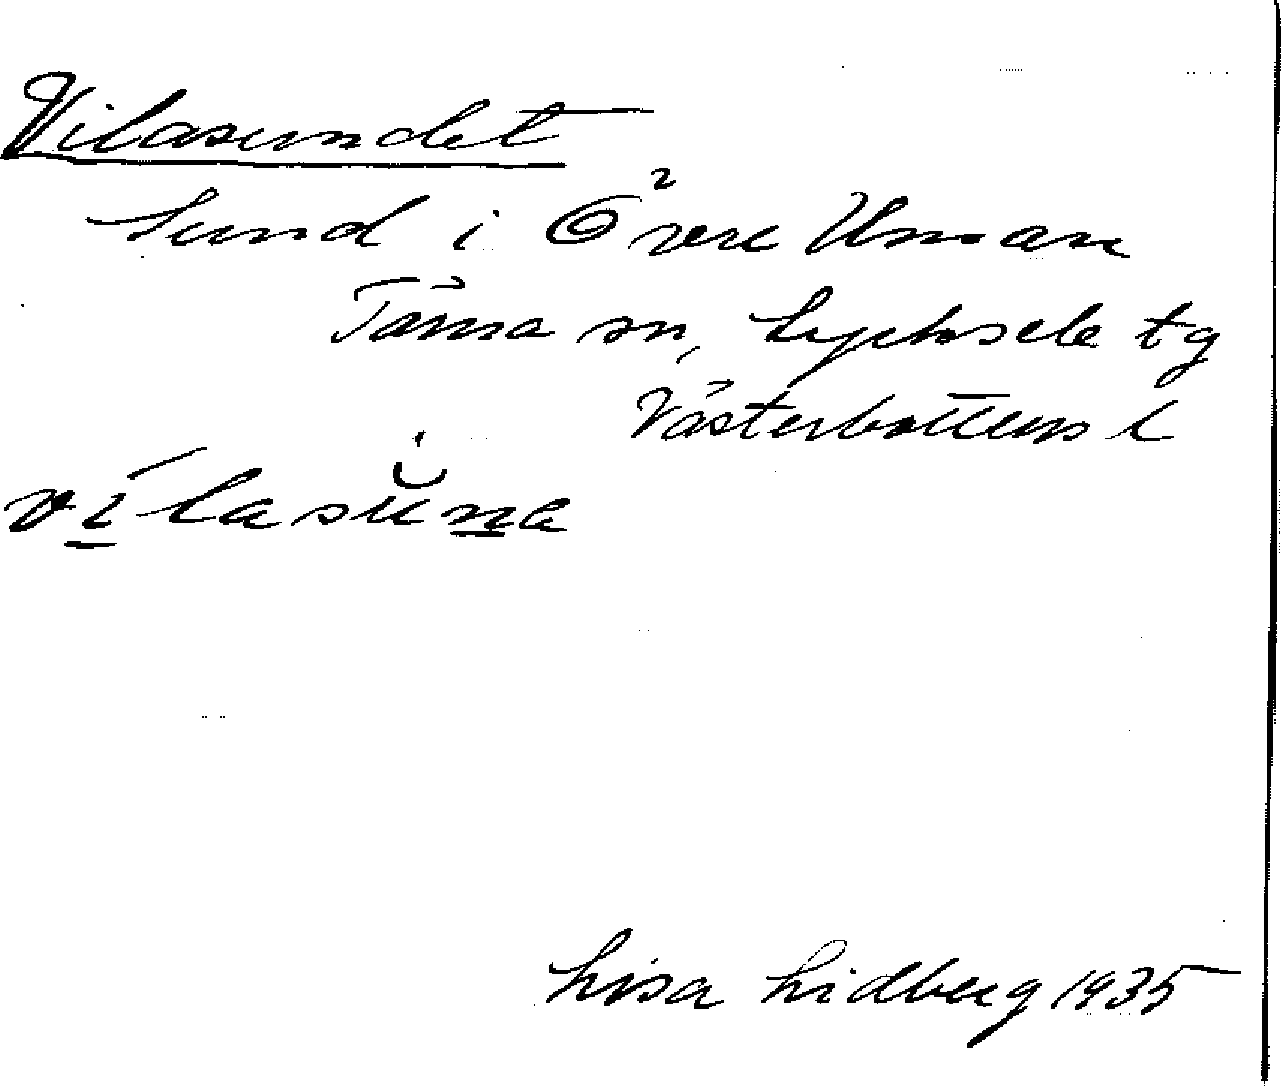 Vilasundet
Sund i Övre Uman
Tärna sn, Lycksele tg
Västerbottens l
vílasŭna
Lisa Lidberg 1935